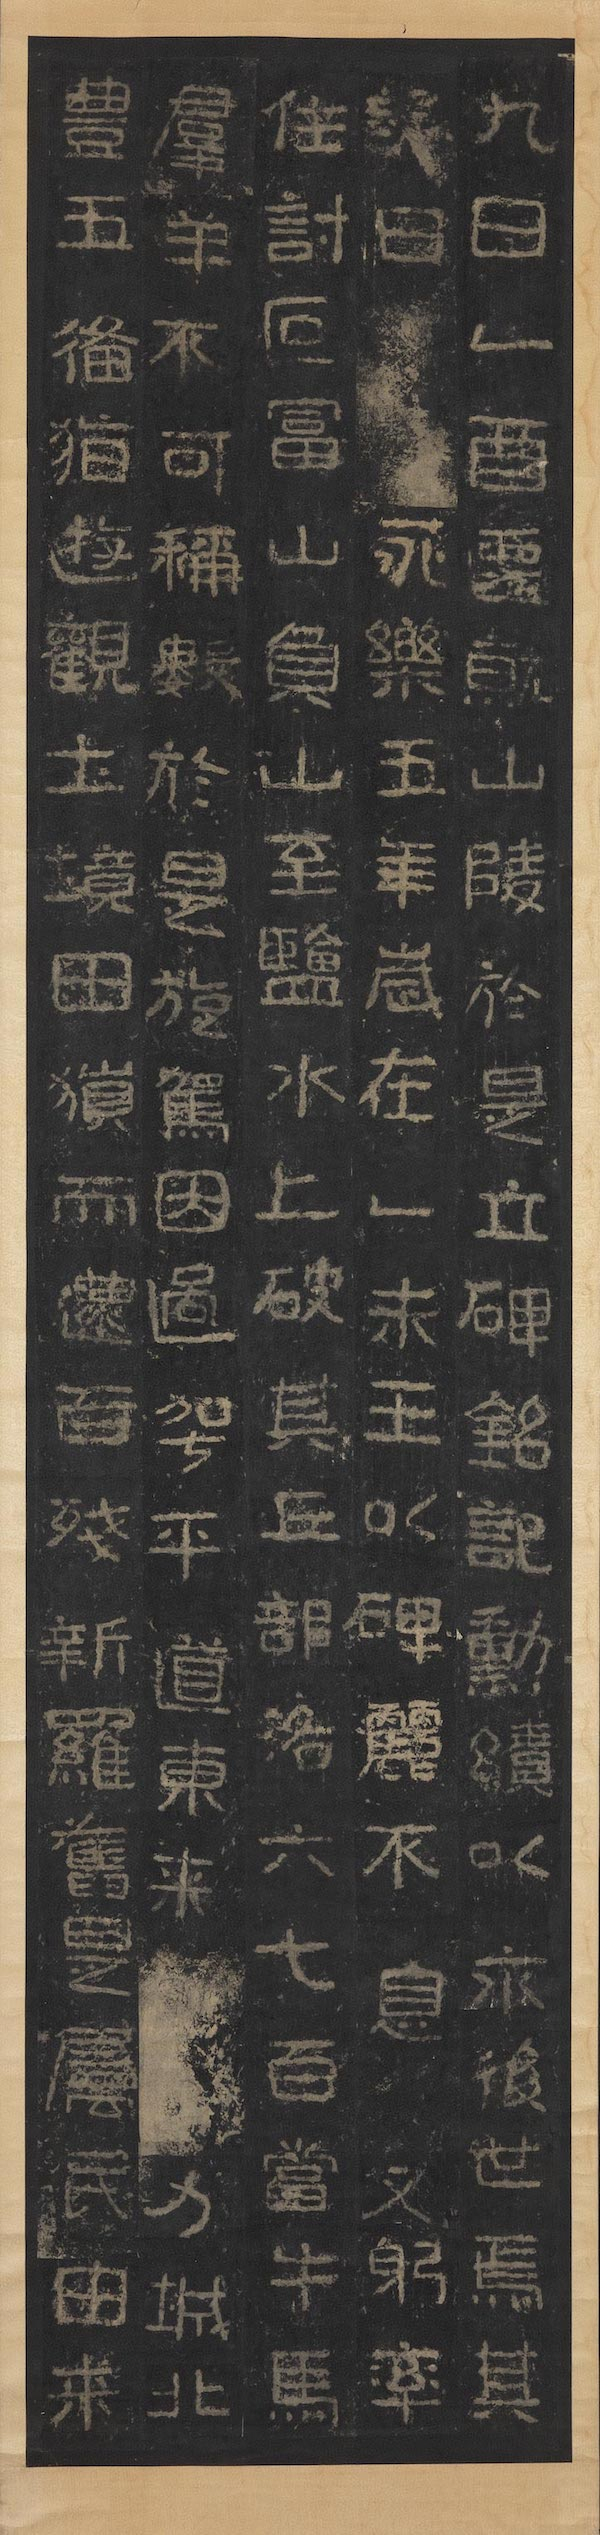 九日乙酉䙴就山陵於是立碑銘記勳績以示後世焉其
曰永樂五年歲在乙未王以碑麗不息又躬率
住討叵富山負山至鹽水上破其丘部洛六七百當牛馬
羣羊不可稱數於是旋駕因過平道東来力城北
豊五俻猶遊觀土境田獵而還百殘新羅舊是属民由来